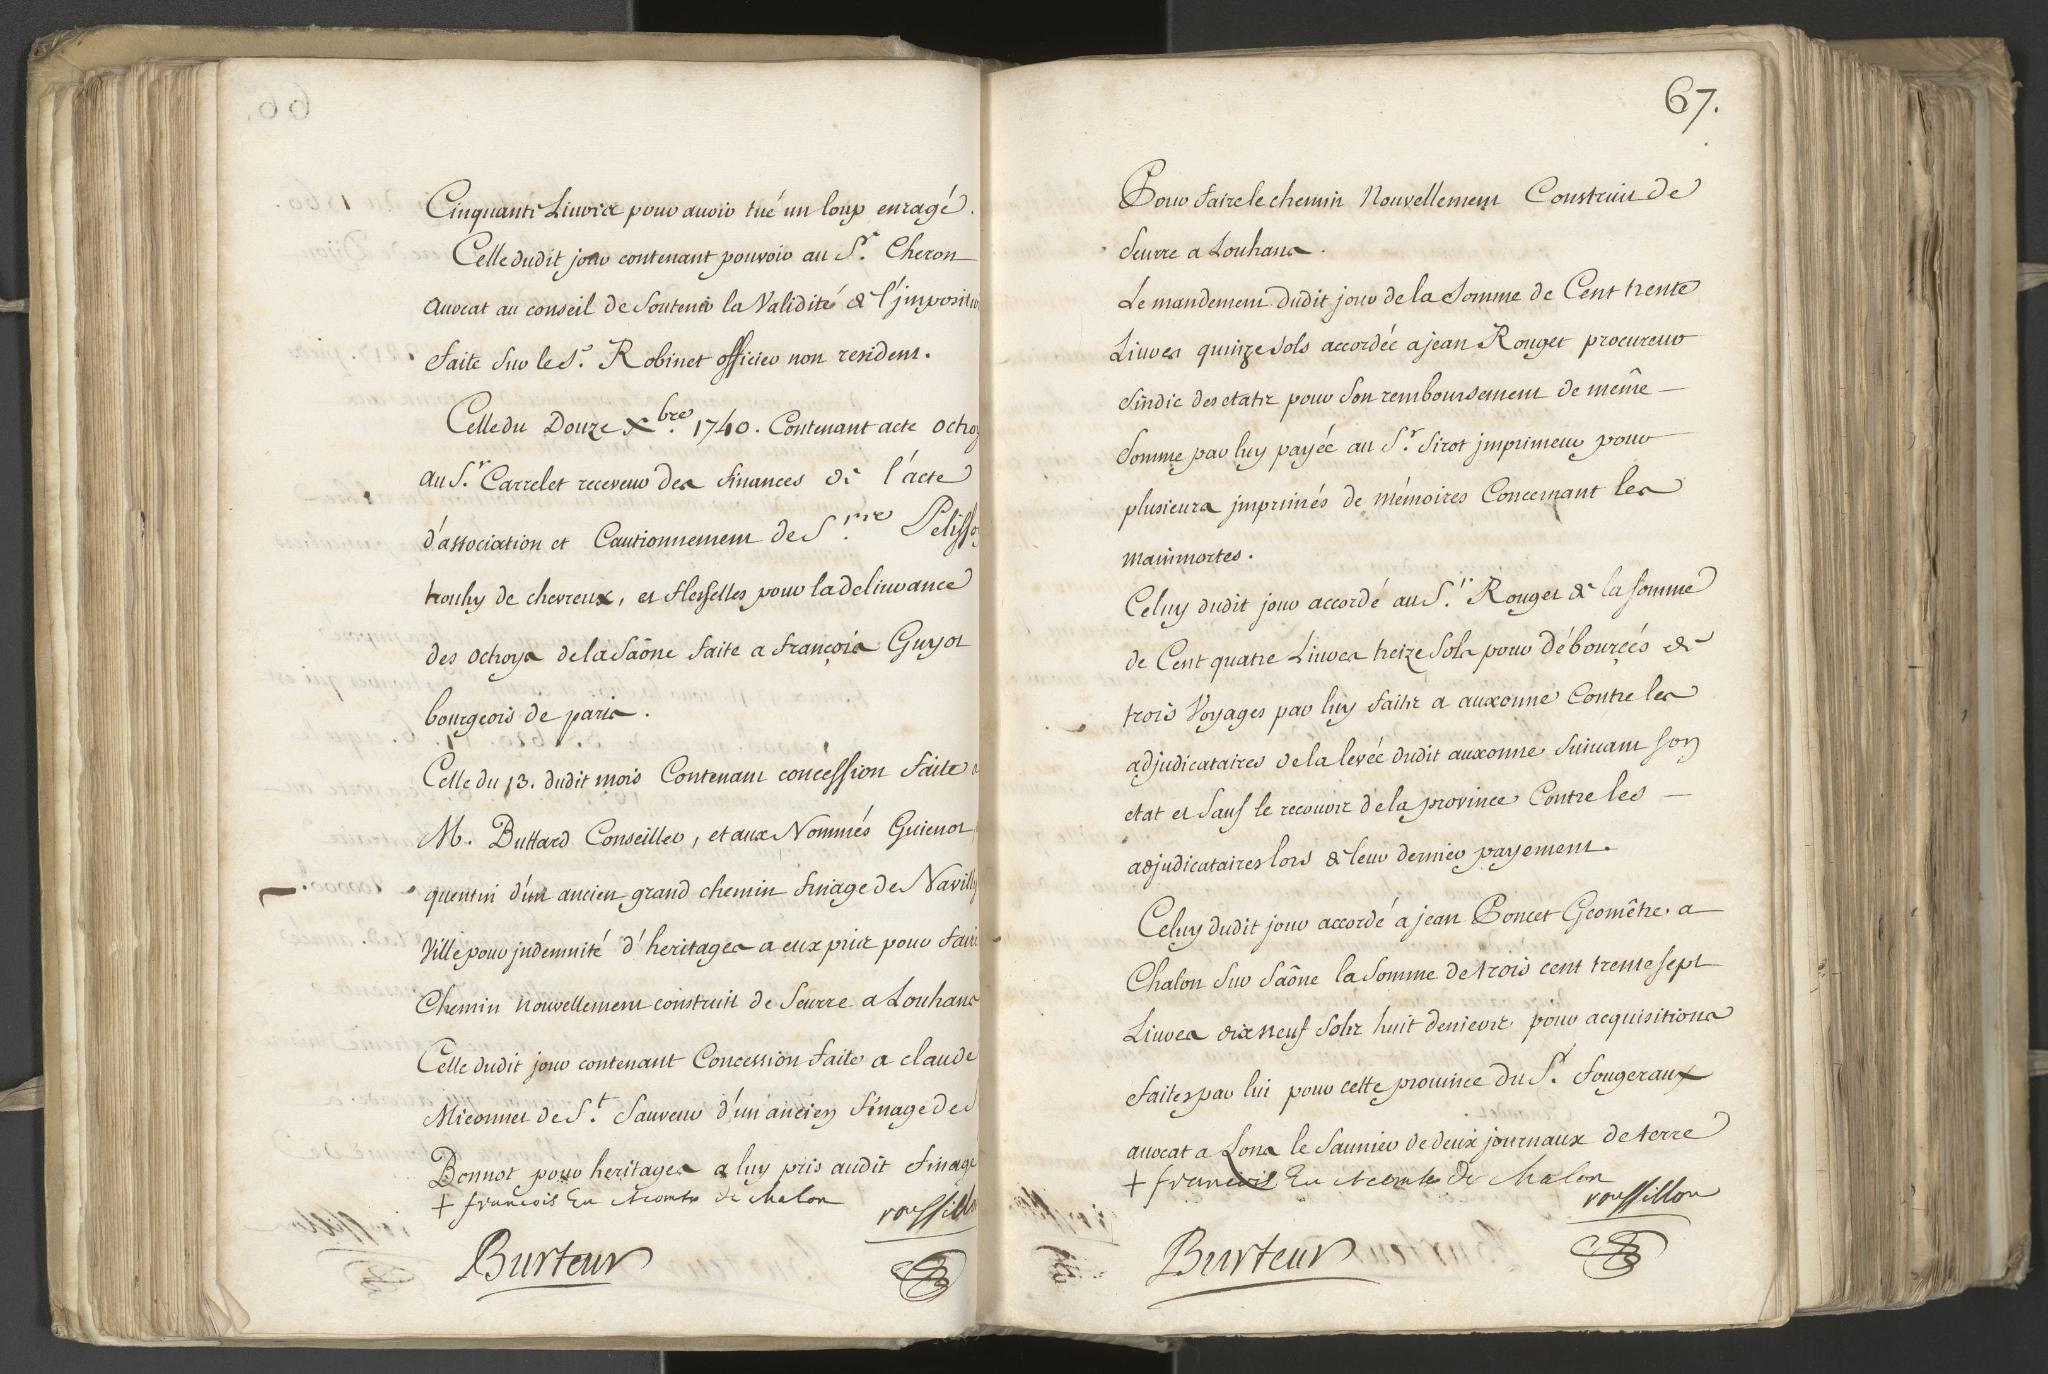 Cinquante Liures pour auoir tué un loup enragé.
Celle dudit jour contenant pouvoir au S.r Cheron
auocat au conseil de Soutenir la Validité de l'jmposition
faite Sur le S.r Robinet officier non resident.
Celle du Douze Xbre. 1740. Contenant acte octroy
au S.r Carrelet receveur des finances de l'acte
d'association et Cautionnement de S.rre Pelissor
trouhy de chevreux, et flesselles pour la deliurance
des octroys de la Sâone faite a françois Guyot
bourgeois de paris.
Celle du 13. dudit mois Contenant concéssion faite a
M. Buttard Conseiller, et aux Nommés Guienot
quentin d'un ancien grand chemin finage de Navilly
Ville pour jndemnité d'heritages a eux pris pour faire
Chemin nouvellement construit de Seurre a Louhans
Celle dudit jour contenant Concession faite a claude
Miconnet de S.t Sauveur d'un ancien finage de
Bonnot pour heritages a luy pris audit finage
+ françois Eu. Comte de Chalon
roussillon
Burteur
67.
Pour faire le chemin Nouvellement Construit de
Seurre a Louhans.
Le mandement dudit jour de la Somme de Cent trente
Liures quinze sols accordée a jean Rouget procureur
Sindic des etats pour Son remboursement de même
Somme par luy payée au S.r Sirot jmprimeur pour
plusieurs jmprimés de mémoires Concernant les
mainmortes.
Celuy dudit jour accordé au S.r Rouget de la somme
de Cent quatre Liures treize Sols pour débourcés de
trois Voyages par luy faits a auxonne Contre les
adjudicataires de la levée dudit auxonne Suivant son
etat et Sauf le recouvrir de la province Contre les
adjudicataires lors de leur dernier payement.
Celuy dudit jour accordé a jean Poncet Geomêtre a
Chalon Sur Saône la Somme de trois cent trente sept
Liures dix neuf Sols huit deniers pour acquisitions
faites par lui pour cette prouince du S.r fougeraux
auocat a Lons le Saunier de deux journaux de terre
+ françois Eu. Comte de Chalon
roussillon
Burteur